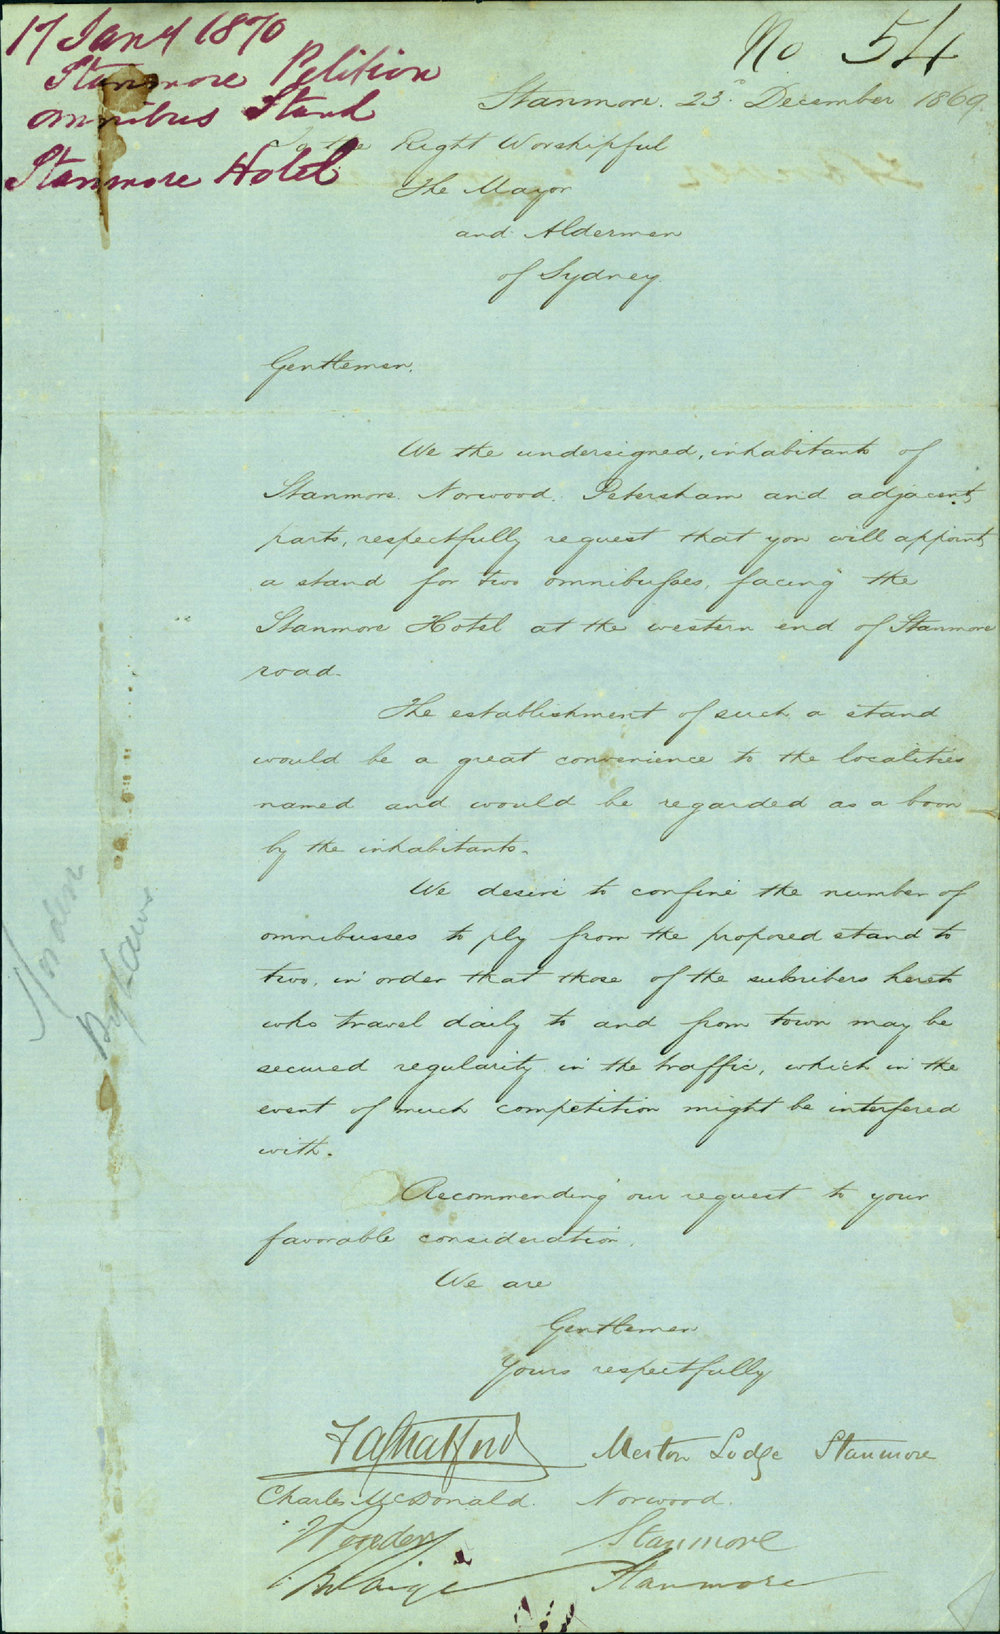 17 Jany 1870
Stanmore Petition
omnibus Stand
Stanmore Hotel
No 54
Stanmore. 23. December 1869.
To the Right Worshipful
The Mayor
and Aldermen
of Sydney.
Gentlemen.
We the undersigned, inhabitants of
Stanmore. Norwood. Petersham and adjacent
parts, respectfully request that you will appoint
a stand for two omnibusses, facing the
Stanmore Hotel at the western end of Stanmore
road.
The establishment of such a stand
would be a great convenience to the localities
named and would be regarded as a boon
by the inhabitants.
We desire to confine the number of
omnibusses to ply from the proposed stand to
two, in order that those of the subscribers hereto
who travel daily to and from town may be
secured regularity in the traffic, which in the
event of much competition might be interfered
with.
Recommending our request to your
favorable consideration.
We are
Gentlemen
Yours respectfully
Merton Lodge Stanmore
Charles McDonald. Norwood.
Stanmore
Stanmore
By Laws